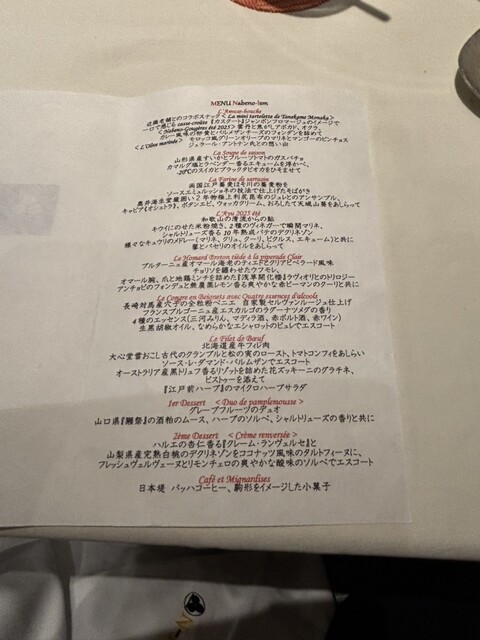 MENU Nabeno-Ism
L'Amuse-bouche
近隣老舗とのコラボスナック < La mini tartelette de Tanekame Monaka >
一口で感じる casse-croûte 『カスクート』ジャンボンフロマージュのイメージで
雲丹と焦がしアボカド、オクラ、
< Nabeno-Gougères été 2025 >
カレー風味の卵黄とパルメザンチーズのフォンダンを詰めて
< L'Olive marinée > モロッコ風グリーンオリーブのマリネとマンゴーのピンチョス
ジェラール・アントナン氏との想い出
La Soupe de saison
山形県産すいかとブルートマトのガスパチョ
カマルグ塩とラベンダー香るエキュームを浮かべ、
-20℃のスイカとブラックタピオカをひそませて
La Farine de sarrasin
両国江戸蕎麦ほそ川の蕎麦粉を
ソースエミュルッショネの技法で仕上げたそばがき
奥井海生堂蔵囲い2年物極上利尻昆布のジュレとのアンサンブル、
キャビア(オシェトラ)、ボタンエビ、ウォッカクリーム、おろしたて天城山葵をあしらって
L'Ayu 2025 été
和歌山の清流からの鮎
キウイにのせた米粉焼き、2種のヴィネガーで瞬間マリネ、
シャルトリューズ香る10年熟成パテのデクリネゾン
様々なキュウリのメドレー(マリネ、グリュ、クーリ、ピクルス、エキューム)と共に
蓼とパセリのオイルをあしらって
Le Homard Breton tiède à la piperade Clair
ブルターニュ産オマール海老のティエドとクリアピペラード風味
チョリソを纏わせたウフモレ、
オマール腕、爪と地鶏ミンチを詰めた『浅草開化楼』ラヴィオリとのトリロジー
アンチョビのフォンデュと無農薬レモン香る爽やかな赤ピーマンのクーリと共に
Le Congre en Beignets avec Quatre essences d'alcools
長崎対馬産穴子の全粒粉ベニエ 自家製セルヴァンルージュ仕上げ
フランスブルゴーニュ産エスカルゴのラグーナツメグの香り
4種のエッセンス(三河みりん、マディラ酒、赤ポルト酒、赤ワイン)
生黒胡椒オイル、なめらかなエシャロットのピュレでエスコート
Le Filet de Bœuf
北海道産牛フィレ肉
大心堂雷おこし古代のクランブルと松の実のロースト、トマトコンフィをあしらい
ソース・レ・ダマンド・バルムザンでエスコート
オーストラリア産黒トリュフ香るリゾットを詰めた花ズッキーニのグラチネ、
ピストゥーを添えて
『江戸前ハーブ』のマイクロハーブサラダ
1er Dessert < Duo de pamplemousse >
グレープフルーツのデュオ
山口県『獺祭』の酒粕のムース、ハーブのソルベ、シャルトリューズの香りと共に
2ème Dessert < Crème renversée >
ハルエの杏仁香る『クレーム・ランヴェルセ』と
山梨県産完熟白桃のデクリネゾンをココナッツ風味のタルトフィーヌに、
フレッシュヴェルヴェーヌとリモンチェロの爽やかな酸味のソルベでエスコート
Café et Mignardises
日本堤 バッハコーヒー、駒形をイメージした小菓子